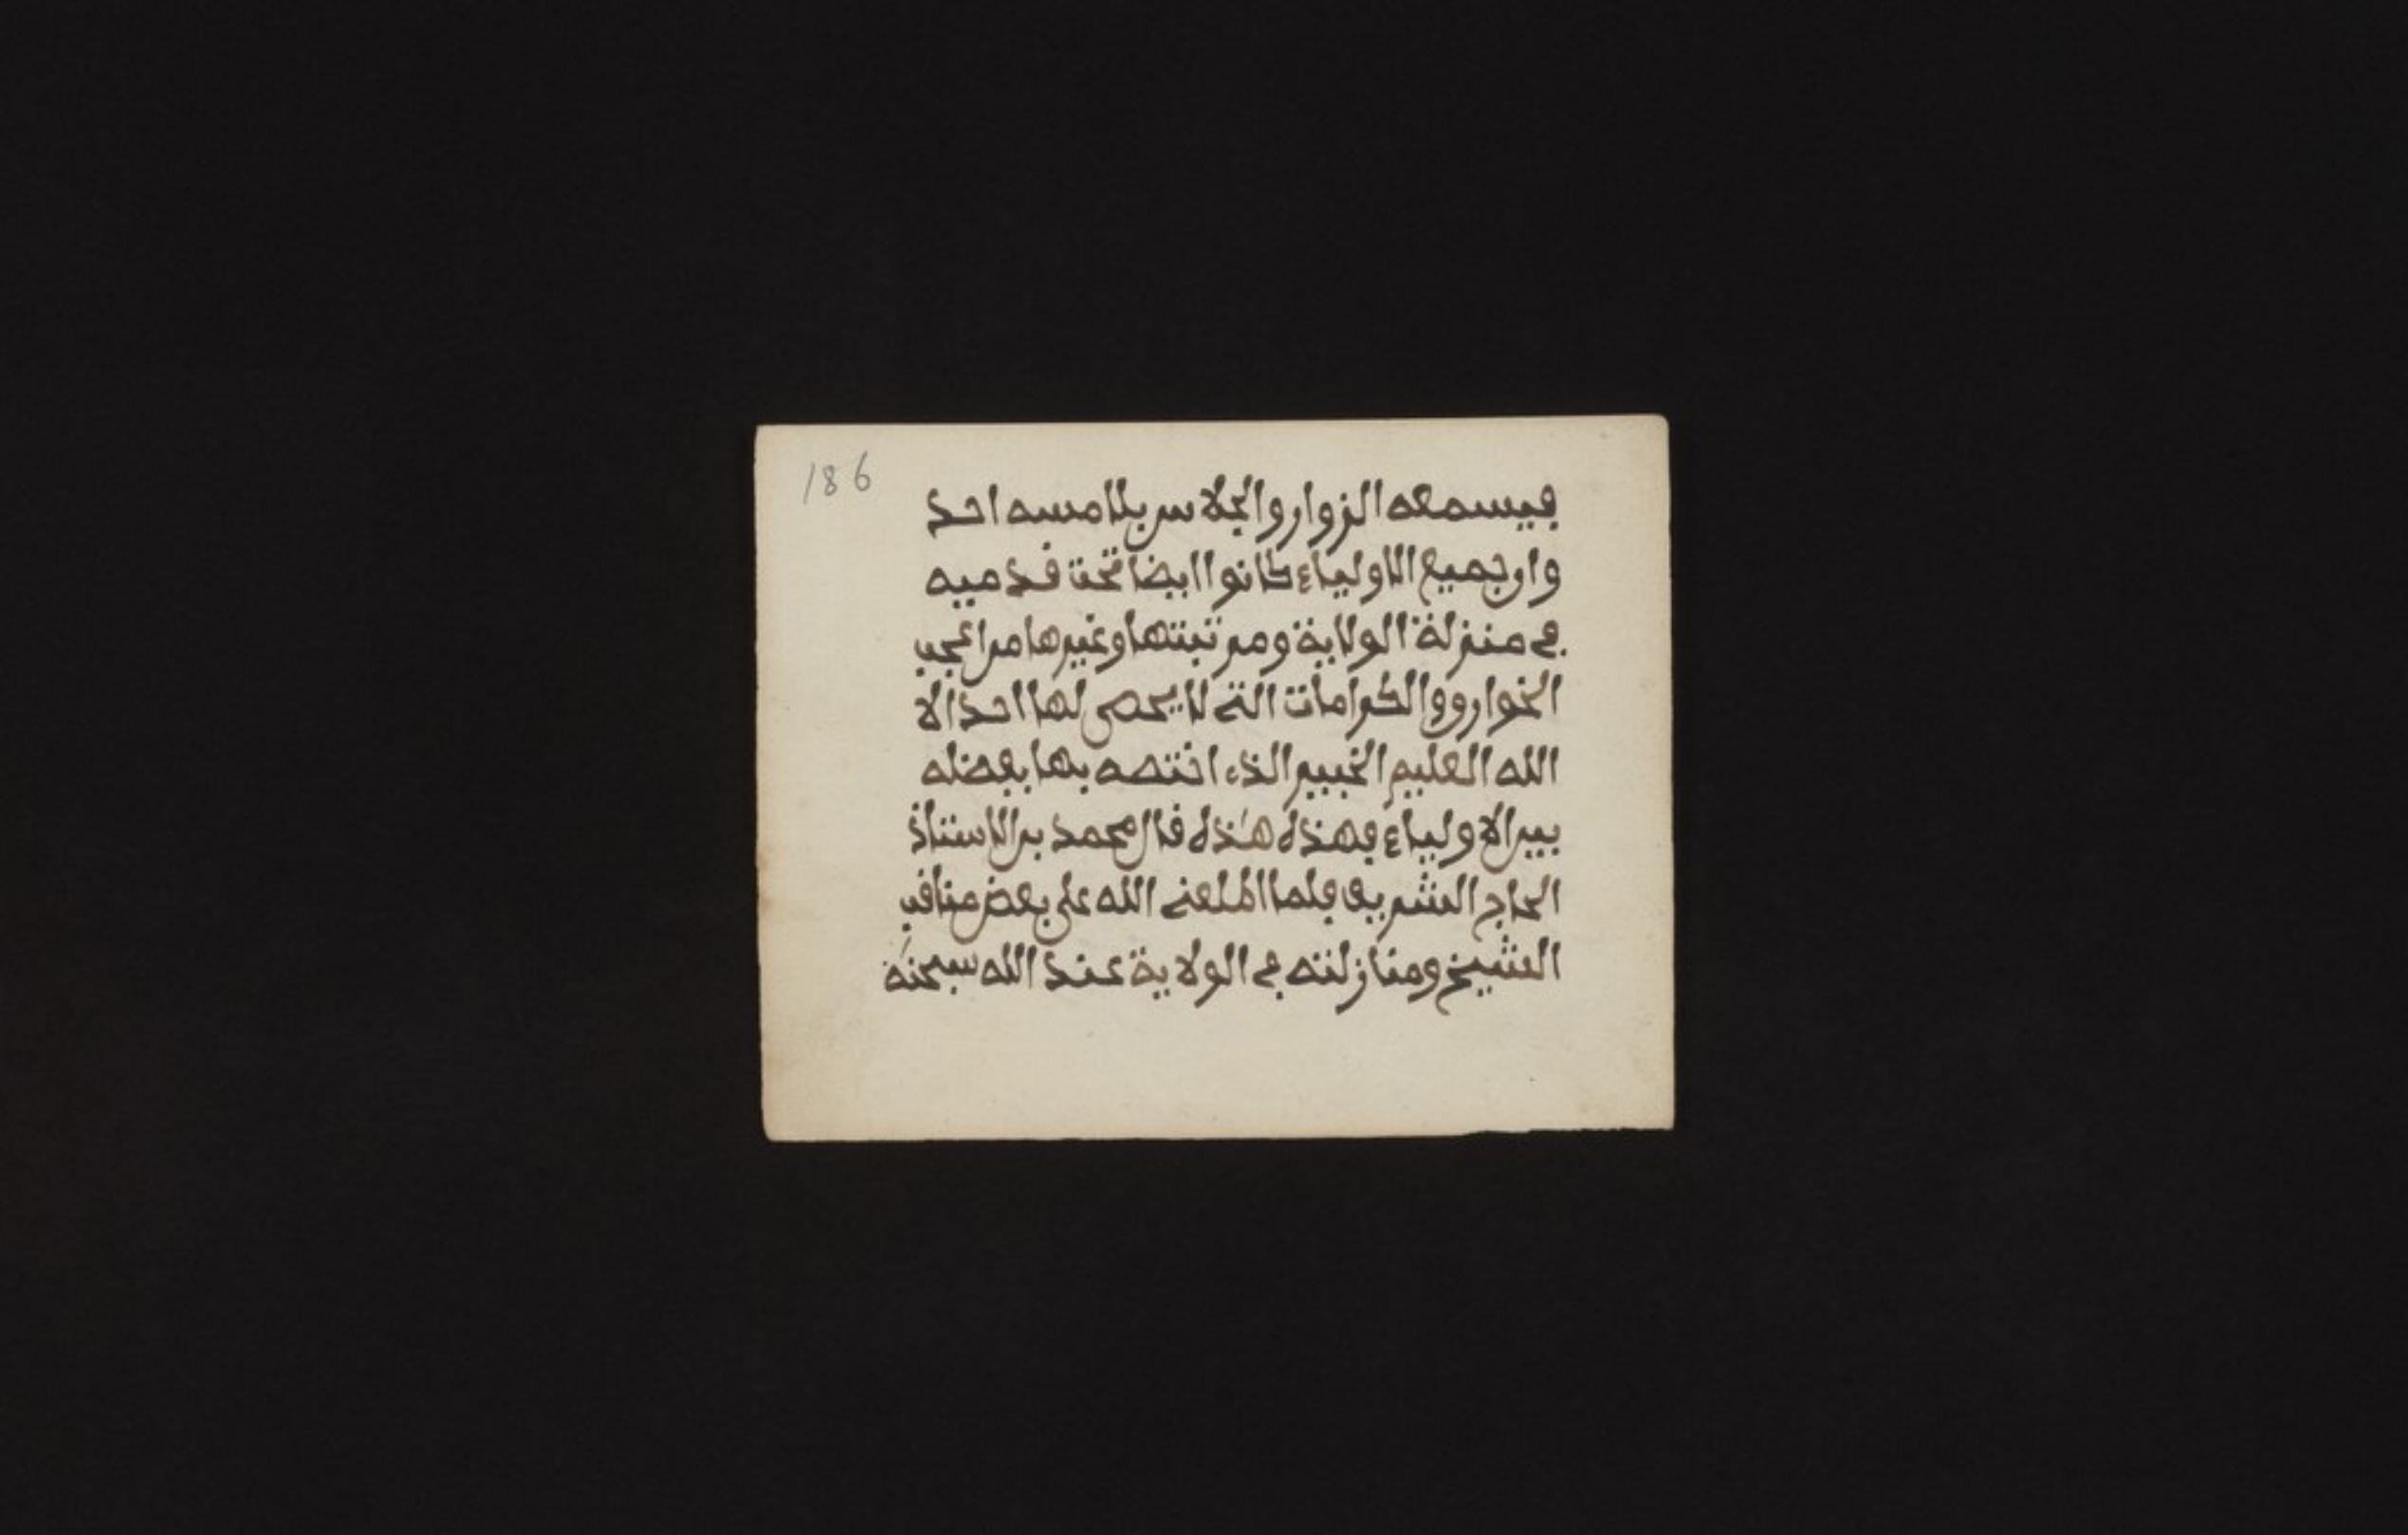 186
فيسمعه الزوار والجلاس بلا مسه احد
وان جميع الاولياء كانوا ايضا تحت قدميه
في منزلة الولاية ومرتبتها وغيرها من اعجب
الخوارق والكرامات التي لا يحصى لها احد الا
الله العليم الخبير الذي اختصه بها بفضله
بين الاولياء فهذه هذه قال محمد بن الاستاذ
الحاج الشريف فلما اطلعني الله على بعض مناقب
الشيخ ومنازلته في الولاية عند الله سبحنه